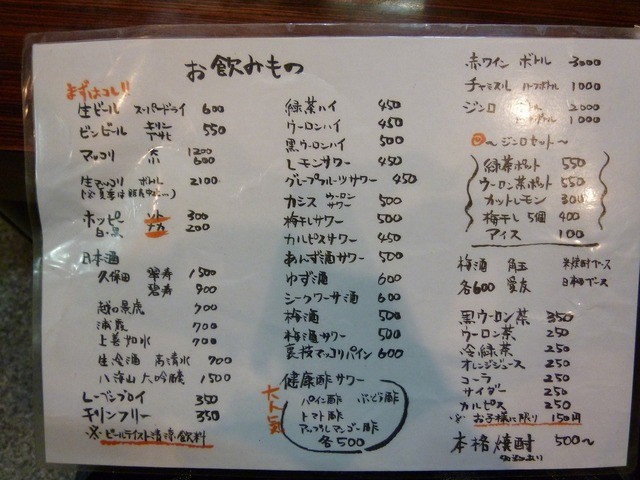 お飲みもの
まずはコレ!!
生ビール スーパードライ 600
ビンビール キリン アサヒ 550
マッコリ 大 1200
小 600
生マッコリ ボトル 2100
ホッピー ソト 300
白・黒 ナカ 200
日本酒
久保田 翠寿 1500
碧寿 900
越の景虎 700
浦霞 700
上善如水 700
生冷酒 高清水 700
八海山 大吟醸 1500
レーベンブロイ 350
キリンフリー 350
※ビールテイスト清涼飲料
緑茶ハイ 450
ウーロンハイ 450
黒ウーロンハイ 500
レモンサワー 450
グレープフルーツサワー 450
カシス ウーロン サワー 500
梅干しサワー 500
カルピスサワー 450
あんず酒サワー 500
ゆず酒 600
シークワーサ酒 600
梅酒 500
梅酒サワー 500
裏技マッコリパイン 600
健康酢サワー
パイン酢 ぶどう酢
トマト酢
アップルマンゴー酢
各500
赤ワイン ボトル 3000
チャミスル ハーフボトル 1000
ジンロ 2000
1000
〜ジンロセット〜
緑茶ポット 550
ウーロン茶ポット 550
カットレモン 300
梅干し 5個 400
アイス 100
梅酒 角玉 米焼酎ベース
各600 愛友 日本酒ベース
黒ウーロン茶 350
ウーロン茶 250
冷緑茶 250
オレンジジュース 250
コーラ 250
サイダー 250
カルピス 250
※お子様に限り 150円
本格焼酎 500〜